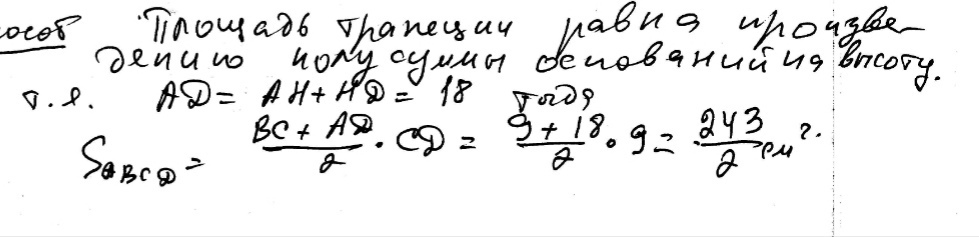 особ Площадь трапеции равна произве-
дению полусуммы оснований на высоту.
т.е. AD = AH + HD = 18 тогда
S_{ABCD} = \frac{BC + AD}{2} · CD = \frac{9 + 18}{2} · 9 = \frac{243}{2} см².